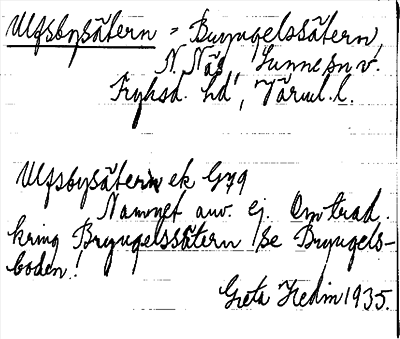 Ulfsbysätern = Bryngelssätern,
N. Näs, Sunne sn v.
Fryksd. hd, Värml. l.
Ulfsbysätern ek G79
Namnet anv. ej. Om trad.
kring Bryngelssätern se Bryngels-
boden!
Greta Hedin 1935.